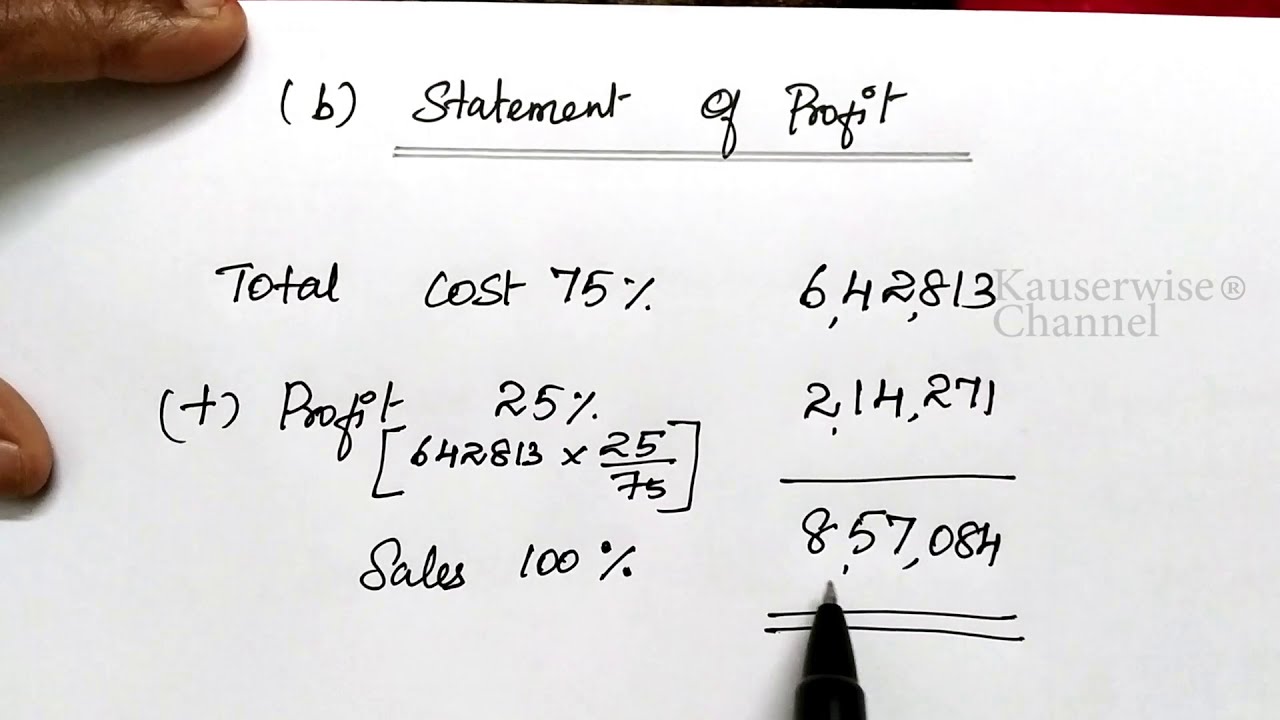 (b) Statement of Profit
Total cost 75% 6,42,813
(+) Profit 25% 2,14,271
[642813 × 25/75]
Sales 100% 8,57,084
Kauserwise®
Channel